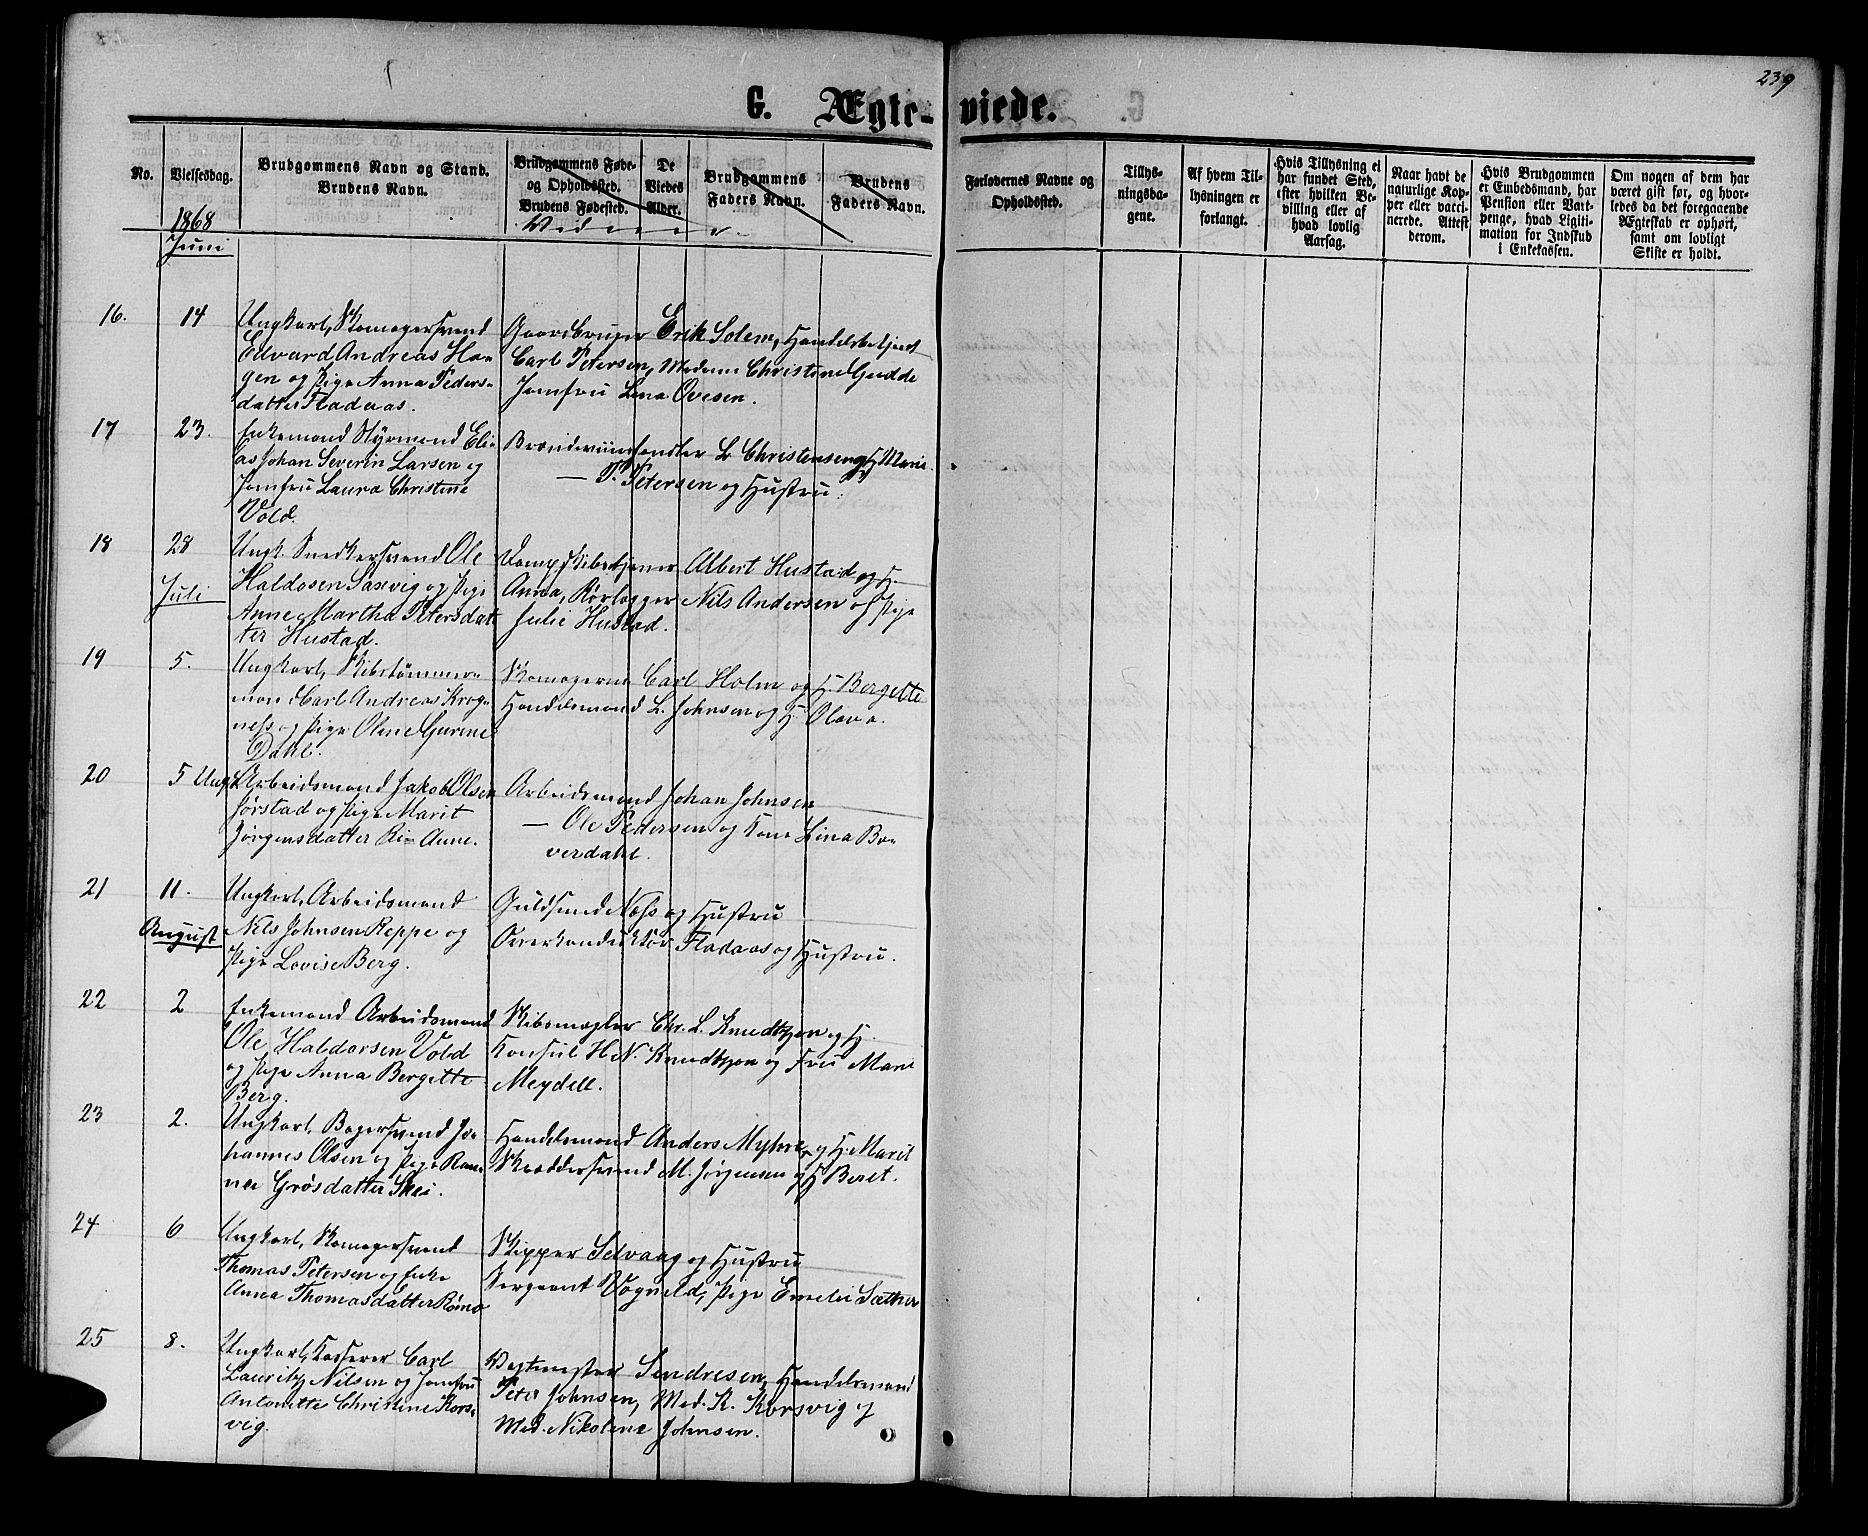 239
G. Ægte-viede.
No.
Vielsesdag.
Brudgommens Navn og Stand.
Brudens Navn.
Brudgommens Føde-
og Opholdssted.
Brudens Fødested.
De
Viedes
Alder.
Brudgommens
Faders Navn.
Brudens
Faders Navn.
Forlovernes Navne og
Opholdssted.
Tillys-
ningsda-
gene.
Af hvem Til-
lysningen er
forlangt.
Hvis Tillysning ei
har fundet Sted,
efter hvilken Be-
villing eller af
hvad lovlig
Aarsag.
Naar havt de
naturlige Kop-
per eller vacci-
nerede. Attest
derom.
Hvis Brudgommen
er Embedsmand, har
Pension eller Vart-
penge, hvad Ligiti-
mation for Indskud
i Enkekassen.
Om nogen af dem har
været gift før, og hvor-
ledes da det foregaaende
Ægteskab er ophørt,
samt om lovligt
Skifte er holdt.
1868
Juni
Vidner.
16. 14
Ungkarl, Skomagersvend
Edvard Andreas Ha-
gen og Pige Anna Peders-
datter Fladaas.
Gaardbruger Erik Solem, Handelsbetjent
Carl Petersen, Madame Christine Gudde
Jomfru Lena Ovesen.
17 23.
Enkemand Styrmand Eli-
as Johan Severin Larsen og
Jomfru Laura Christine
Vold.
Brændeviinshandler L Christensen og H. Marie
— P. Petersen og Hustru.
18 28
Ungk. Snedkersvend Ole
Haldosen Saxvig og Pige
Anne Martha Petersdat-
ter Hustad.
Dampskibstjener Albert Hustad og H.
Anna, Rørlægger Nils Andersen og Pige
Julie Hustad.
Juli
19 5.
Ungkarl, Skibstømmer-
mand Carl Andreas Krog-
ness og Pige Oline Gurine
Dahl.
Skomagerne Carl Holm og H. Bergette
Handelsmand L. Johnsen og H. Olava.
20 5
Ungk. Arbeidsmand Jakob Olsen
Jørstad og Pige Marit
Jørgensdatter Ri- Aune.
Arbeidsmand Johan Johnsen
— Ole Pedersen og Kone Lina Bo-
verdahl.
21 11.
Ungkarl, Arbeidsmand
Nils Johnsen Reppe og
Pige Lovise Berg.
Guldsmed Næss og Hustru
Overkonduktør Fladaas og Hustru.
August
22 2
Enkemand Arbeidsmand
Ole Haldorsen Vold
og Pige Anna Bergette
Berg.
Skibsmægler Chr. L. Knudtzon og H.
Konsul H.N. Knudtzon og Fru Marie
Meydell.
23 2.
Ungkarl, Bagersvend Jo-
hannes Olsen og Pige Ran-
nei Groesdatter Skei.
Handelsmand Anders Myhre og H. Marit
Skræddersvend M. Jørgensen og H Beret.
24 6
Ungkarl, Skomagersvend
Thomas Petersen og Enke
Anna Thomasdatter Rømo
Skipper Selvaag og Hustru
Sergeant Vognild, Pige Emelie Sæther
25 8.
Ungkarl, Kasserer Carl
Lauritz Nilsen og Jomfru
Antonette Christine Kors-
vig.
Vagtmester Sendresen, Handelsmand
Peter Johnsen, Mad. K. Korsvig og
Mad. Nikoline Johnsen.